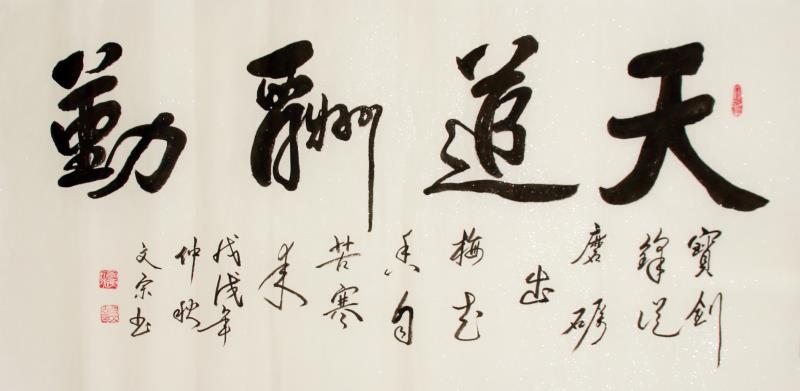 天道酬勤
寶劍
鋒從
磨礪
出
梅花
香自
苦寒
来
戊戌年
仲秋
文宗书